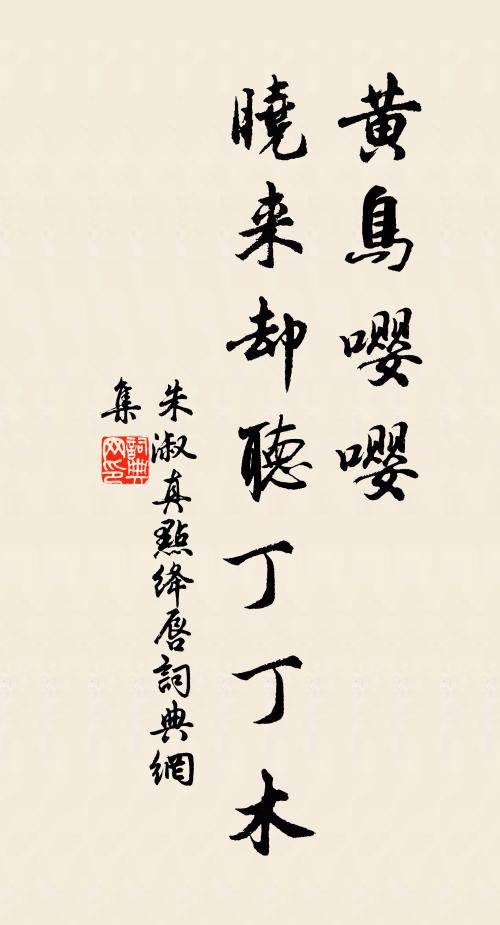 黄鳥嚶嚶
曉来却聽丁丁木
朱淑真點絳唇詞典網
集
詞典網印